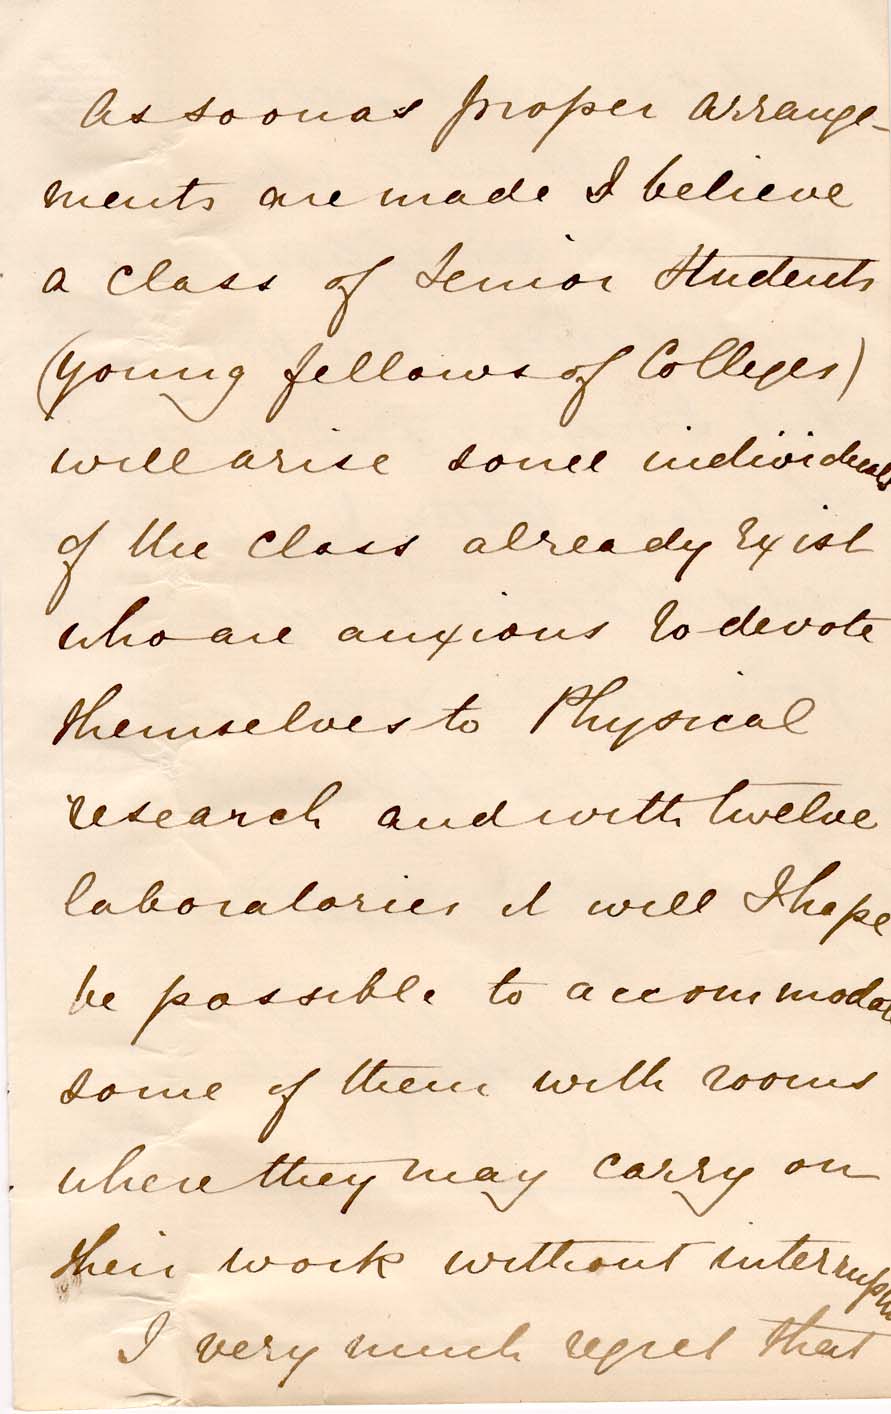 As soon as proper arrange-
ments are made I believe
a class of Senior Students
(young fellows of Colleges)
will arise some individuals
of the class already exist
who are anxious to devote
themselves to Physical
research and with twelve
laboratories it will I hope
be possible to accommodate
some of them with rooms
where they may carry on
their work without interruption
I very much regret that